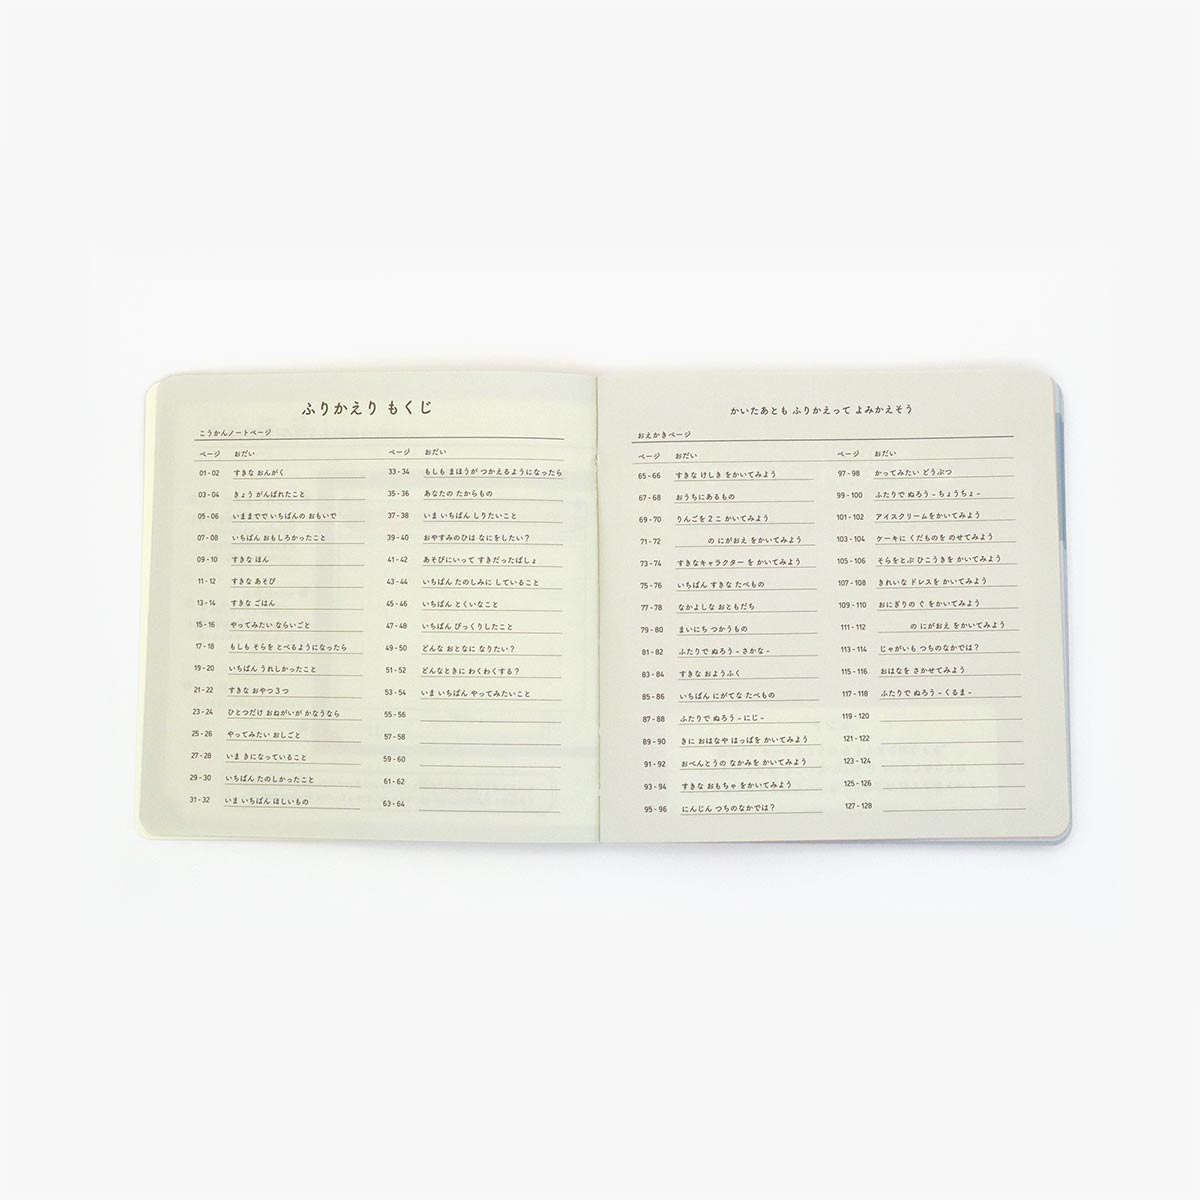 ふりかえり もくじ
こうかんノートページ
ページ おだい
01 - 02 すきな おんがく
03 - 04 きょう がんばれたこと
05 - 06 いままでで いちばんの おもいで
07 - 08 いちばん おもしろかったこと
09 - 10 すきな ほん
11 - 12 すきな あそび
13 - 14 すきな ごはん
15 - 16 やってみたい ならいごと
17 - 18 もしも そらを とべるようになったら
19 - 20 いちばん うれしかったこと
21 - 22 すきな おやつ 3つ
23 - 24 ひとつだけ おねがいが かなうなら
25 - 26 やってみたい おしごと
27 - 28 いま きになっていること
29 - 30 いちばん たのしかったこと
31 - 32 いま いちばん ほしいもの
ページ おだい
33 - 34 もしも まほうが つかえるようになったら
35 - 36 あなたの たからもの
37 - 38 いま いちばん しりたいこと
39 - 40 おやすみのひは なにをしたい?
41 - 42 あそびにいって すきだったばしょ
43 - 44 いちばん たのしみに していること
45 - 46 いちばん とくいなこと
47 - 48 いちばん びっくりしたこと
49 - 50 どんな おとなに なりたい?
51 - 52 どんなときに わくわくする?
53 - 54 いま いちばん やってみたいこと
55 - 56
57 - 58
59 - 60
61 - 62
63 - 64
かいたあとも ふりかえって よみかえそう
おえかきページ
ページ おだい
65 - 66 すきな けしき をかいてみよう
67 - 68 おうちにあるもの
69 - 70 りんごを 2 こ かいてみよう
71 - 72 の にがおえ をかいてみよう
73 - 74 すきなキャラクター を かいてみよう
75 - 76 いちばん すきな たべもの
77 - 78 なかよしな おともだち
79 - 80 まいにち つかうもの
81 - 82 ふたりで ぬろう - さかな -
83 - 84 すきな おようふく
85 - 86 いちばん にがてな たべもの
87 - 88 ふたりで ぬろう - にじ -
89 - 90 きに おはなや はっぱを かいてみよう
91 - 92 おべんとうの なかみを かいてみよう
93 - 94 すきな おもちゃ をかいてみよう
95 - 96 にんじん つちのなかでは?
ページ おだい
97 - 98 かってみたい どうぶつ
99 - 100 ふたりで ぬろう - ちょうちょ -
101 - 102 アイスクリームをかいてみよう
103 - 104 ケーキに くだものを のせてみよう
105 - 106 そらをとぶ ひこうきを かいてみよう
107 - 108 きれいな ドレスを かいてみよう
109 - 110 おにぎりの ぐ をかいてみよう
111 - 112 の にがおえ をかいてみよう
113 - 114 じゃがいも つちのなかでは?
115 - 116 おはなを さかせてみよう
117 - 118 ふたりで ぬろう - くるま -
119 - 120
121 - 122
123 - 124
125 - 126
127 - 128